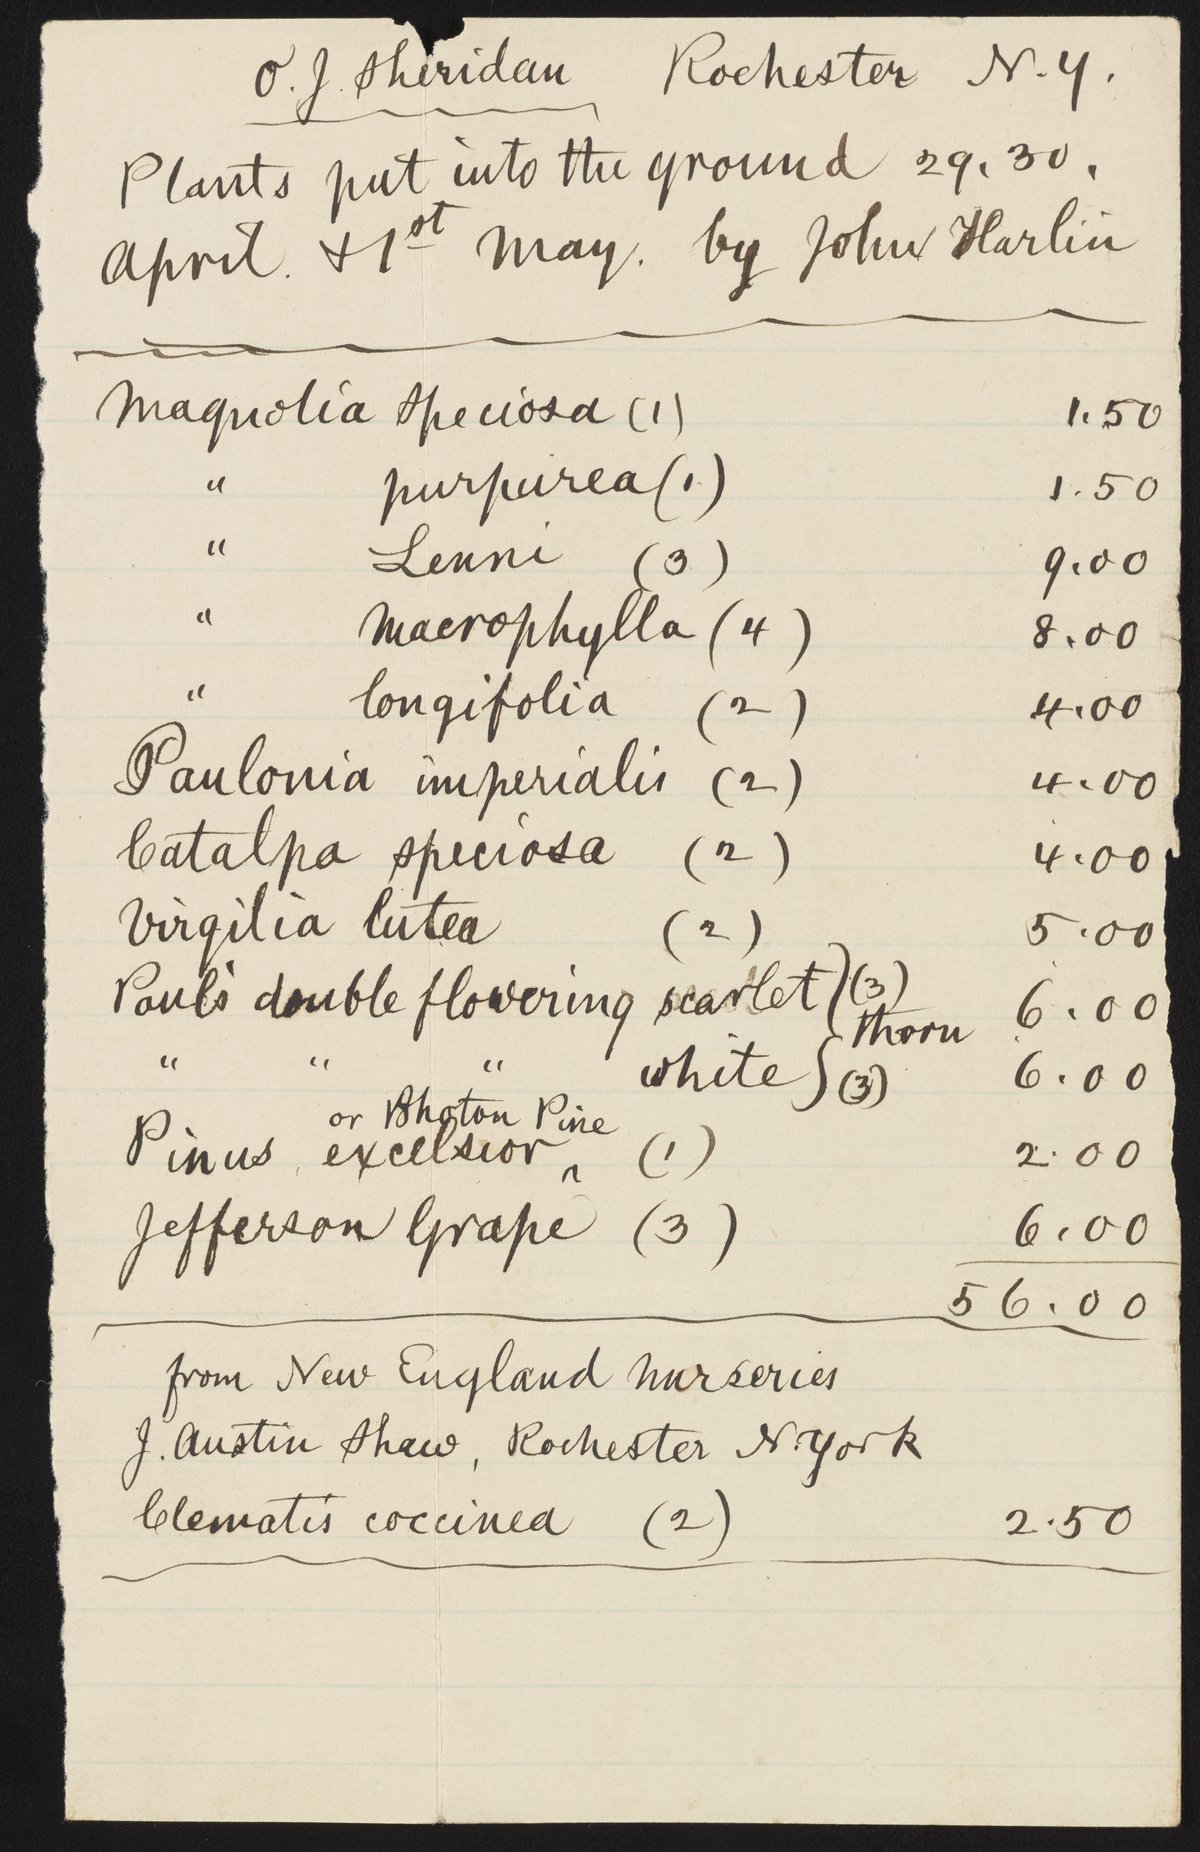 O. J. Sheridan Rochester N. Y.
Plants put into the ground 29, 30,
April. & 1st May. by John Harlin
Magnolia speciosa (1) 1.50
" purpurea (1) 1.50
" Lenni (3) 9.00
" macrophylla (4) 8.00
" longifolia (2) 4.00
Paulonia imperialis (2) 4.00
Catalpa speciosa (2) 4.00
Virgilia lutea (2) 5.00
Paul's double flowering scarlet } (3) 6.00
thorn
" " " white } (3) 6.00
or Bhotan Pine
Pinus excelsior ^ (1) 2.00
Jefferson Grape (3) 6.00
56.00
from New England nurseries
J. Austin Shaw, Rochester N. York
Clematis coccinea (2) 2.50